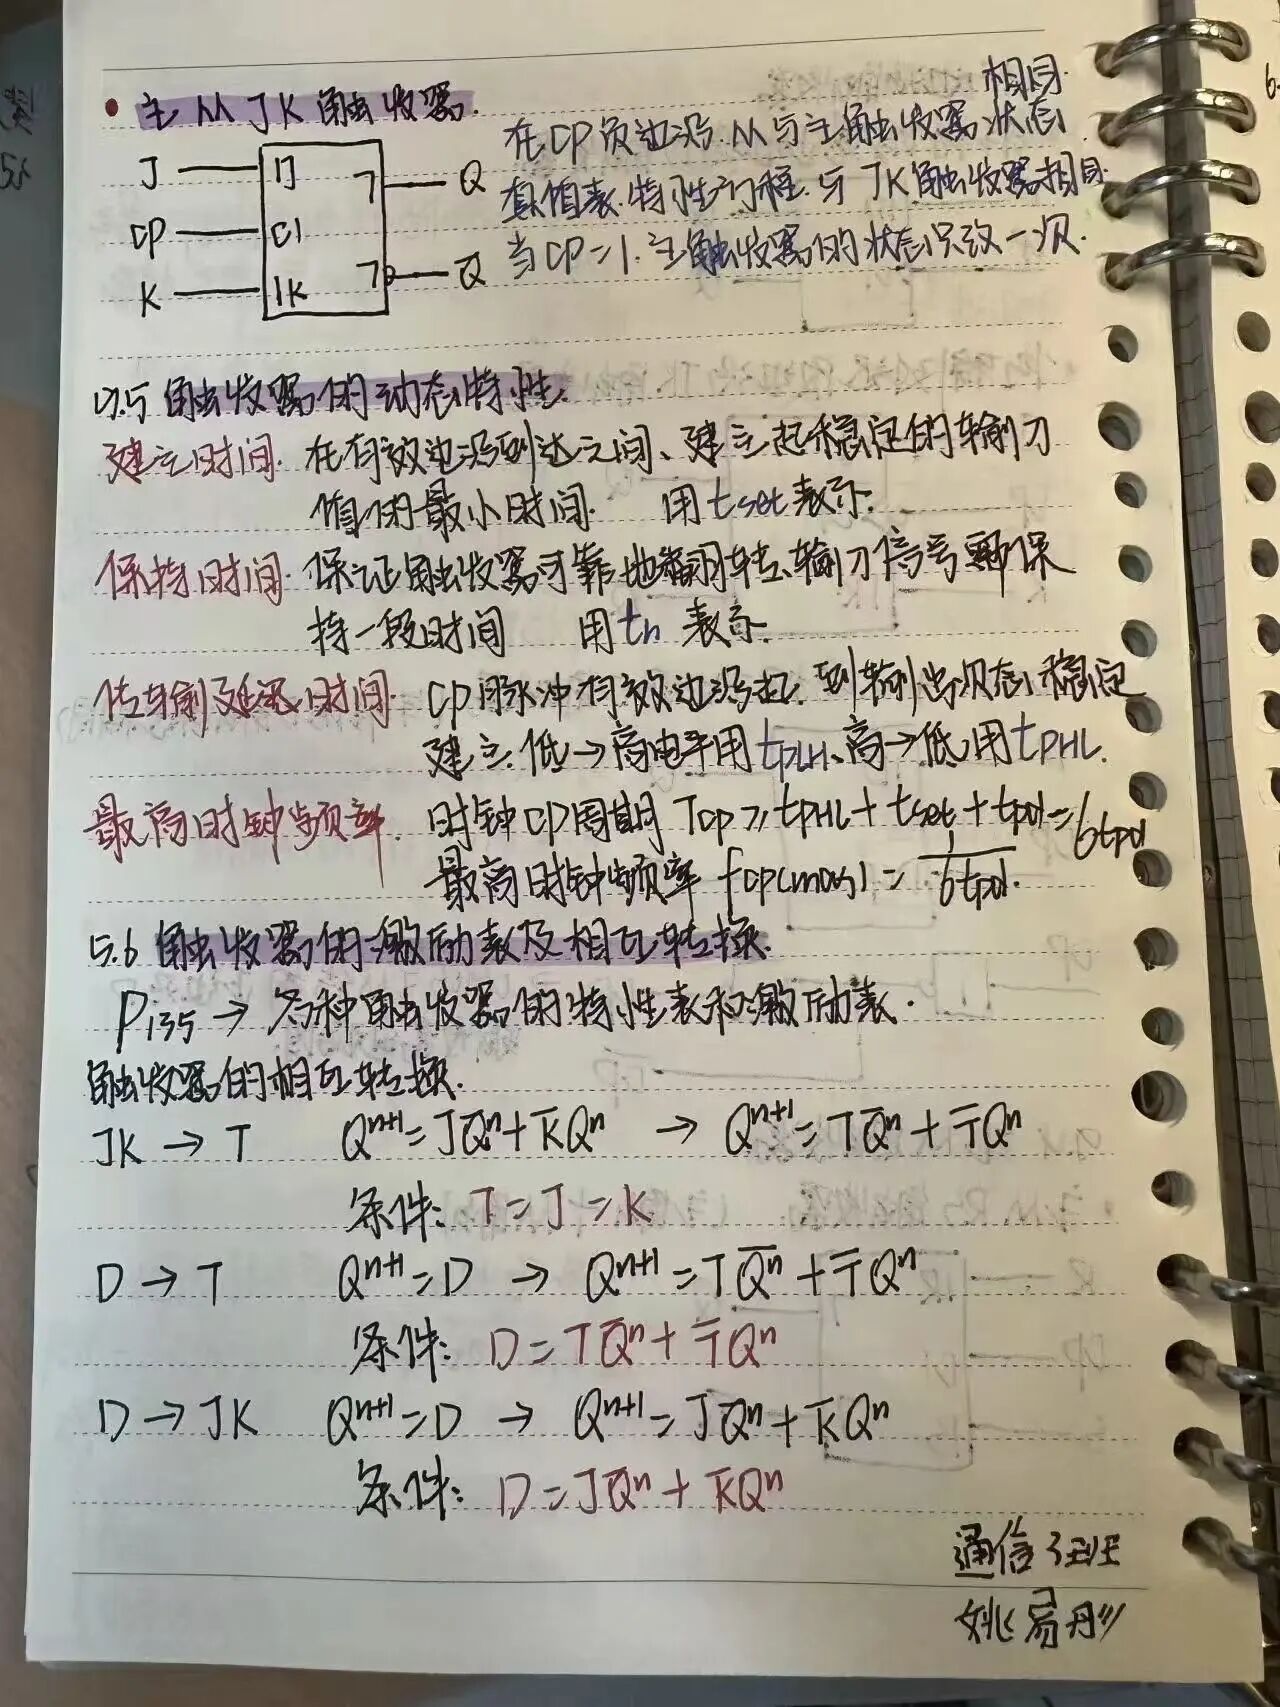 主从JK触发器.
J
1J
7
Q
CP
C1
K
1K
7
Q̄
相同.
在CP负边沿.从与主触发器状态
真值表.特性方程.与JK触发器相同.
当CP=1.主触发器的状态只改一次.
5.5 触发器的动态特性.
建立时间. 在有效边沿到达之间、建立起稳定的输入
值的最小时间. 用tset表示.
保持时间. 保证触发器可靠地翻转、输入信号需保
持一段时间 用th表示.
传输延迟时间. CP脉冲有效边沿起.到输出状态稳定
建立.低→高电平用tPLH、高→低用tPHL.
最高时钟频率. 时钟CP周期 Tcp ≥ tPHL + tset + tpd = 6tpd
最高时钟频率 fcp(max) = 1/6tpd.
5.6 触发器的激励表及相互转换.
P135 → 各种触发器的特性表和激励表.
触发器的相互转换.
JK → T Qⁿ⁺¹ = JQ̄ⁿ + K̄Qⁿ → Qⁿ⁺¹ = TQ̄ⁿ + T̄Qⁿ
条件: T = J = K
D → T Qⁿ⁺¹ = D → Qⁿ⁺¹ = TQ̄ⁿ + T̄Qⁿ
条件: D = TQ̄ⁿ + T̄Qⁿ
D → JK Qⁿ⁺¹ = D → Qⁿ⁺¹ = JQ̄ⁿ + K̄Qⁿ
条件: D = JQ̄ⁿ + K̄Qⁿ
通信
姚易彤